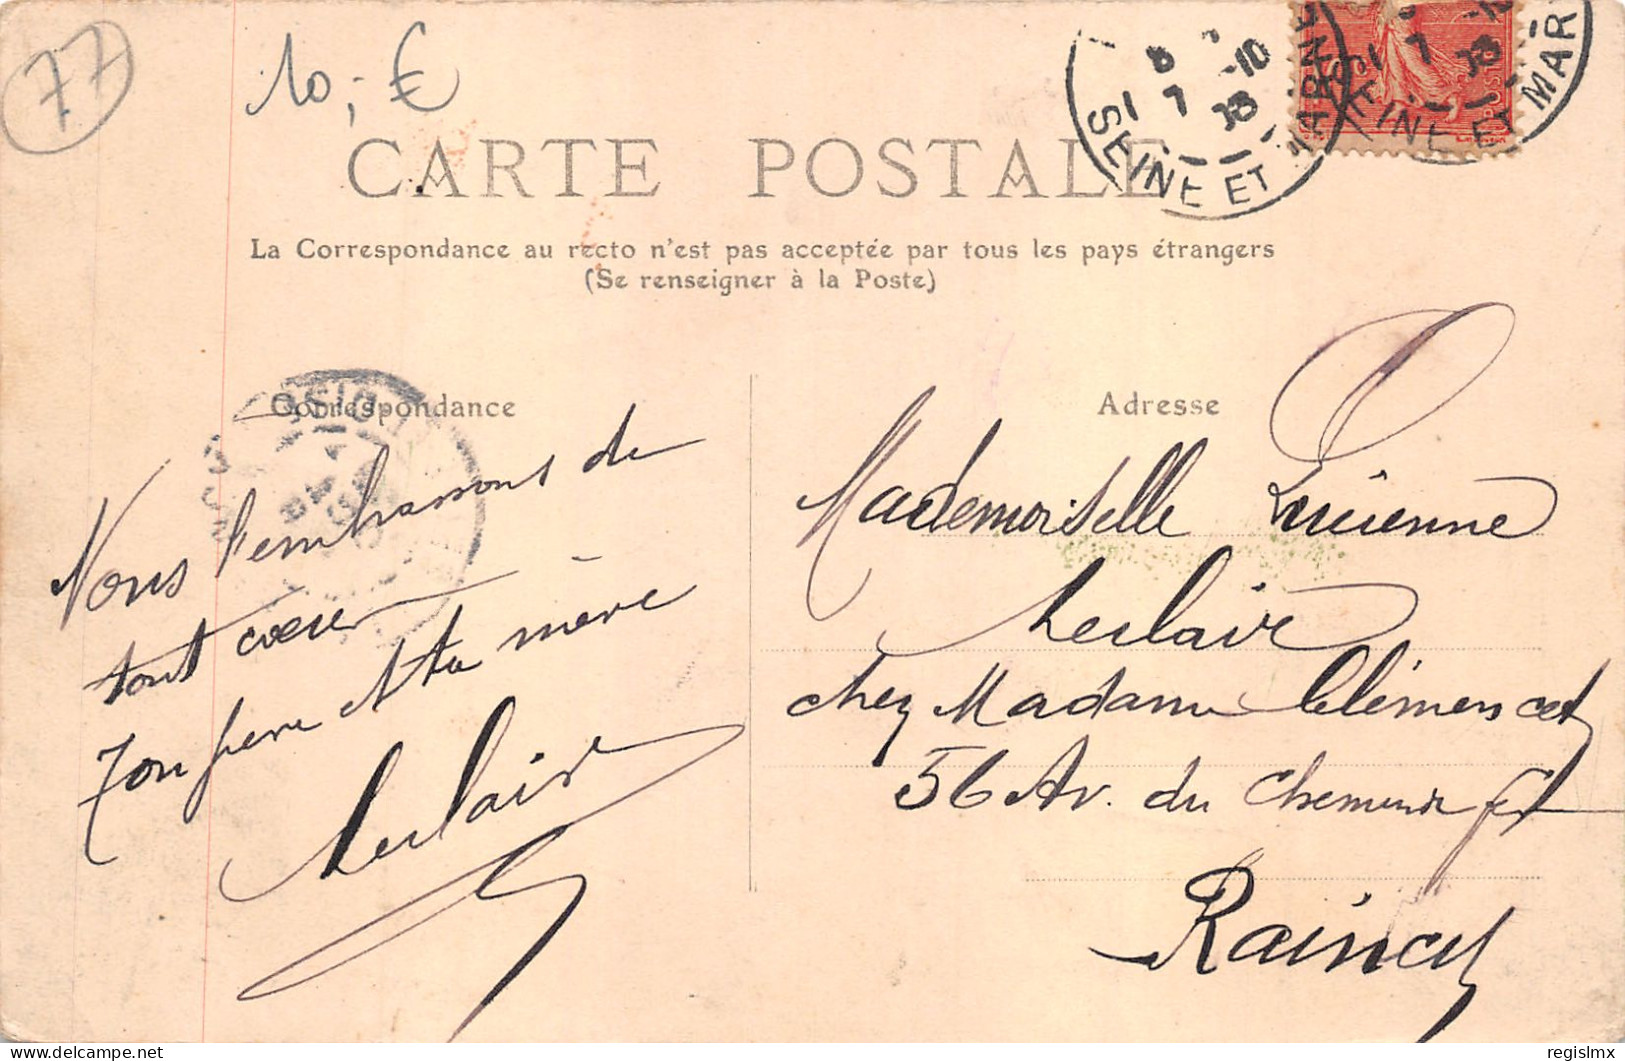 77
10,- €
CARTE POSTALE
SEINE ET MARNE
SEINE ET MAR
La Correspondance au recto n'est pas acceptée par tous les pays étrangers
(Se renseigner à la Poste)
Correspondance
Nous t'embrassons de
tout cœur
Ton père et ta mère
Leclair
Adresse
Mademoiselle Lucienne
Leclair
chez Madame Clémencet
56 Av. du Chemin de fer
Raincy
delcampe.net
regislmx